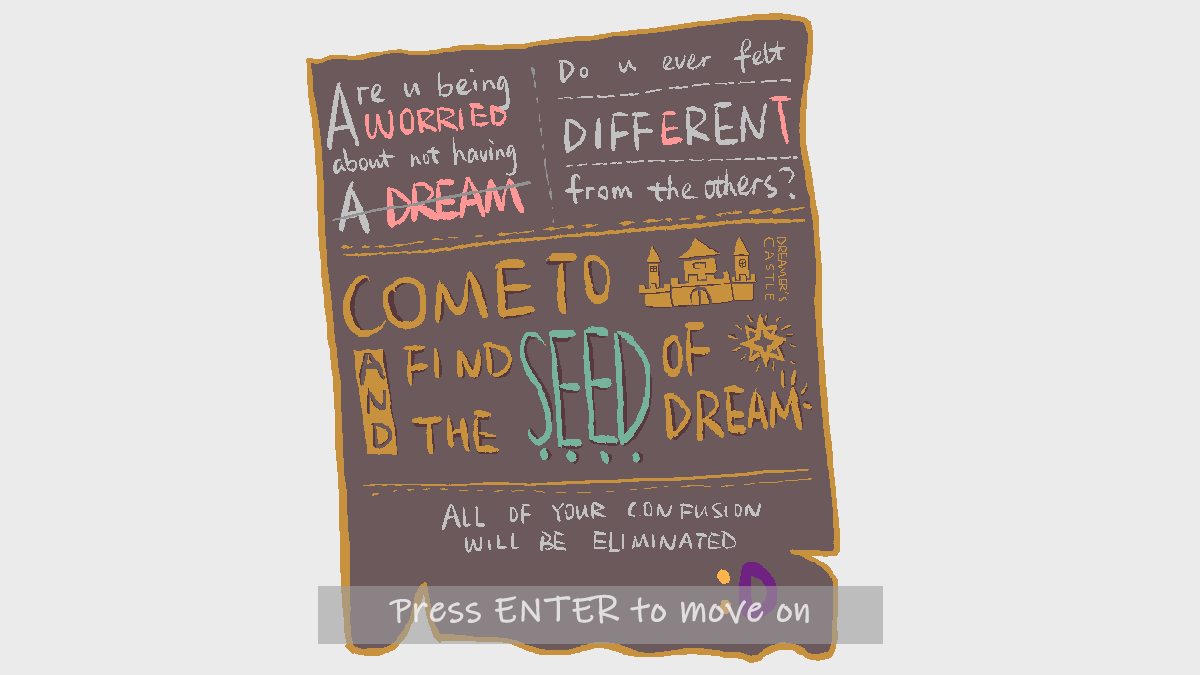 Are u being
WORRIED
about not having
A DREAM
Do u ever felt
DIFFERENT
from the others?
COME TO
DREAMER'S
CASTLE
AND
FIND
THE
SEED
OF
DREAM
ALL OF YOUR CONFUSION
WILL BE ELIMINATED
:D
Press ENTER to move on